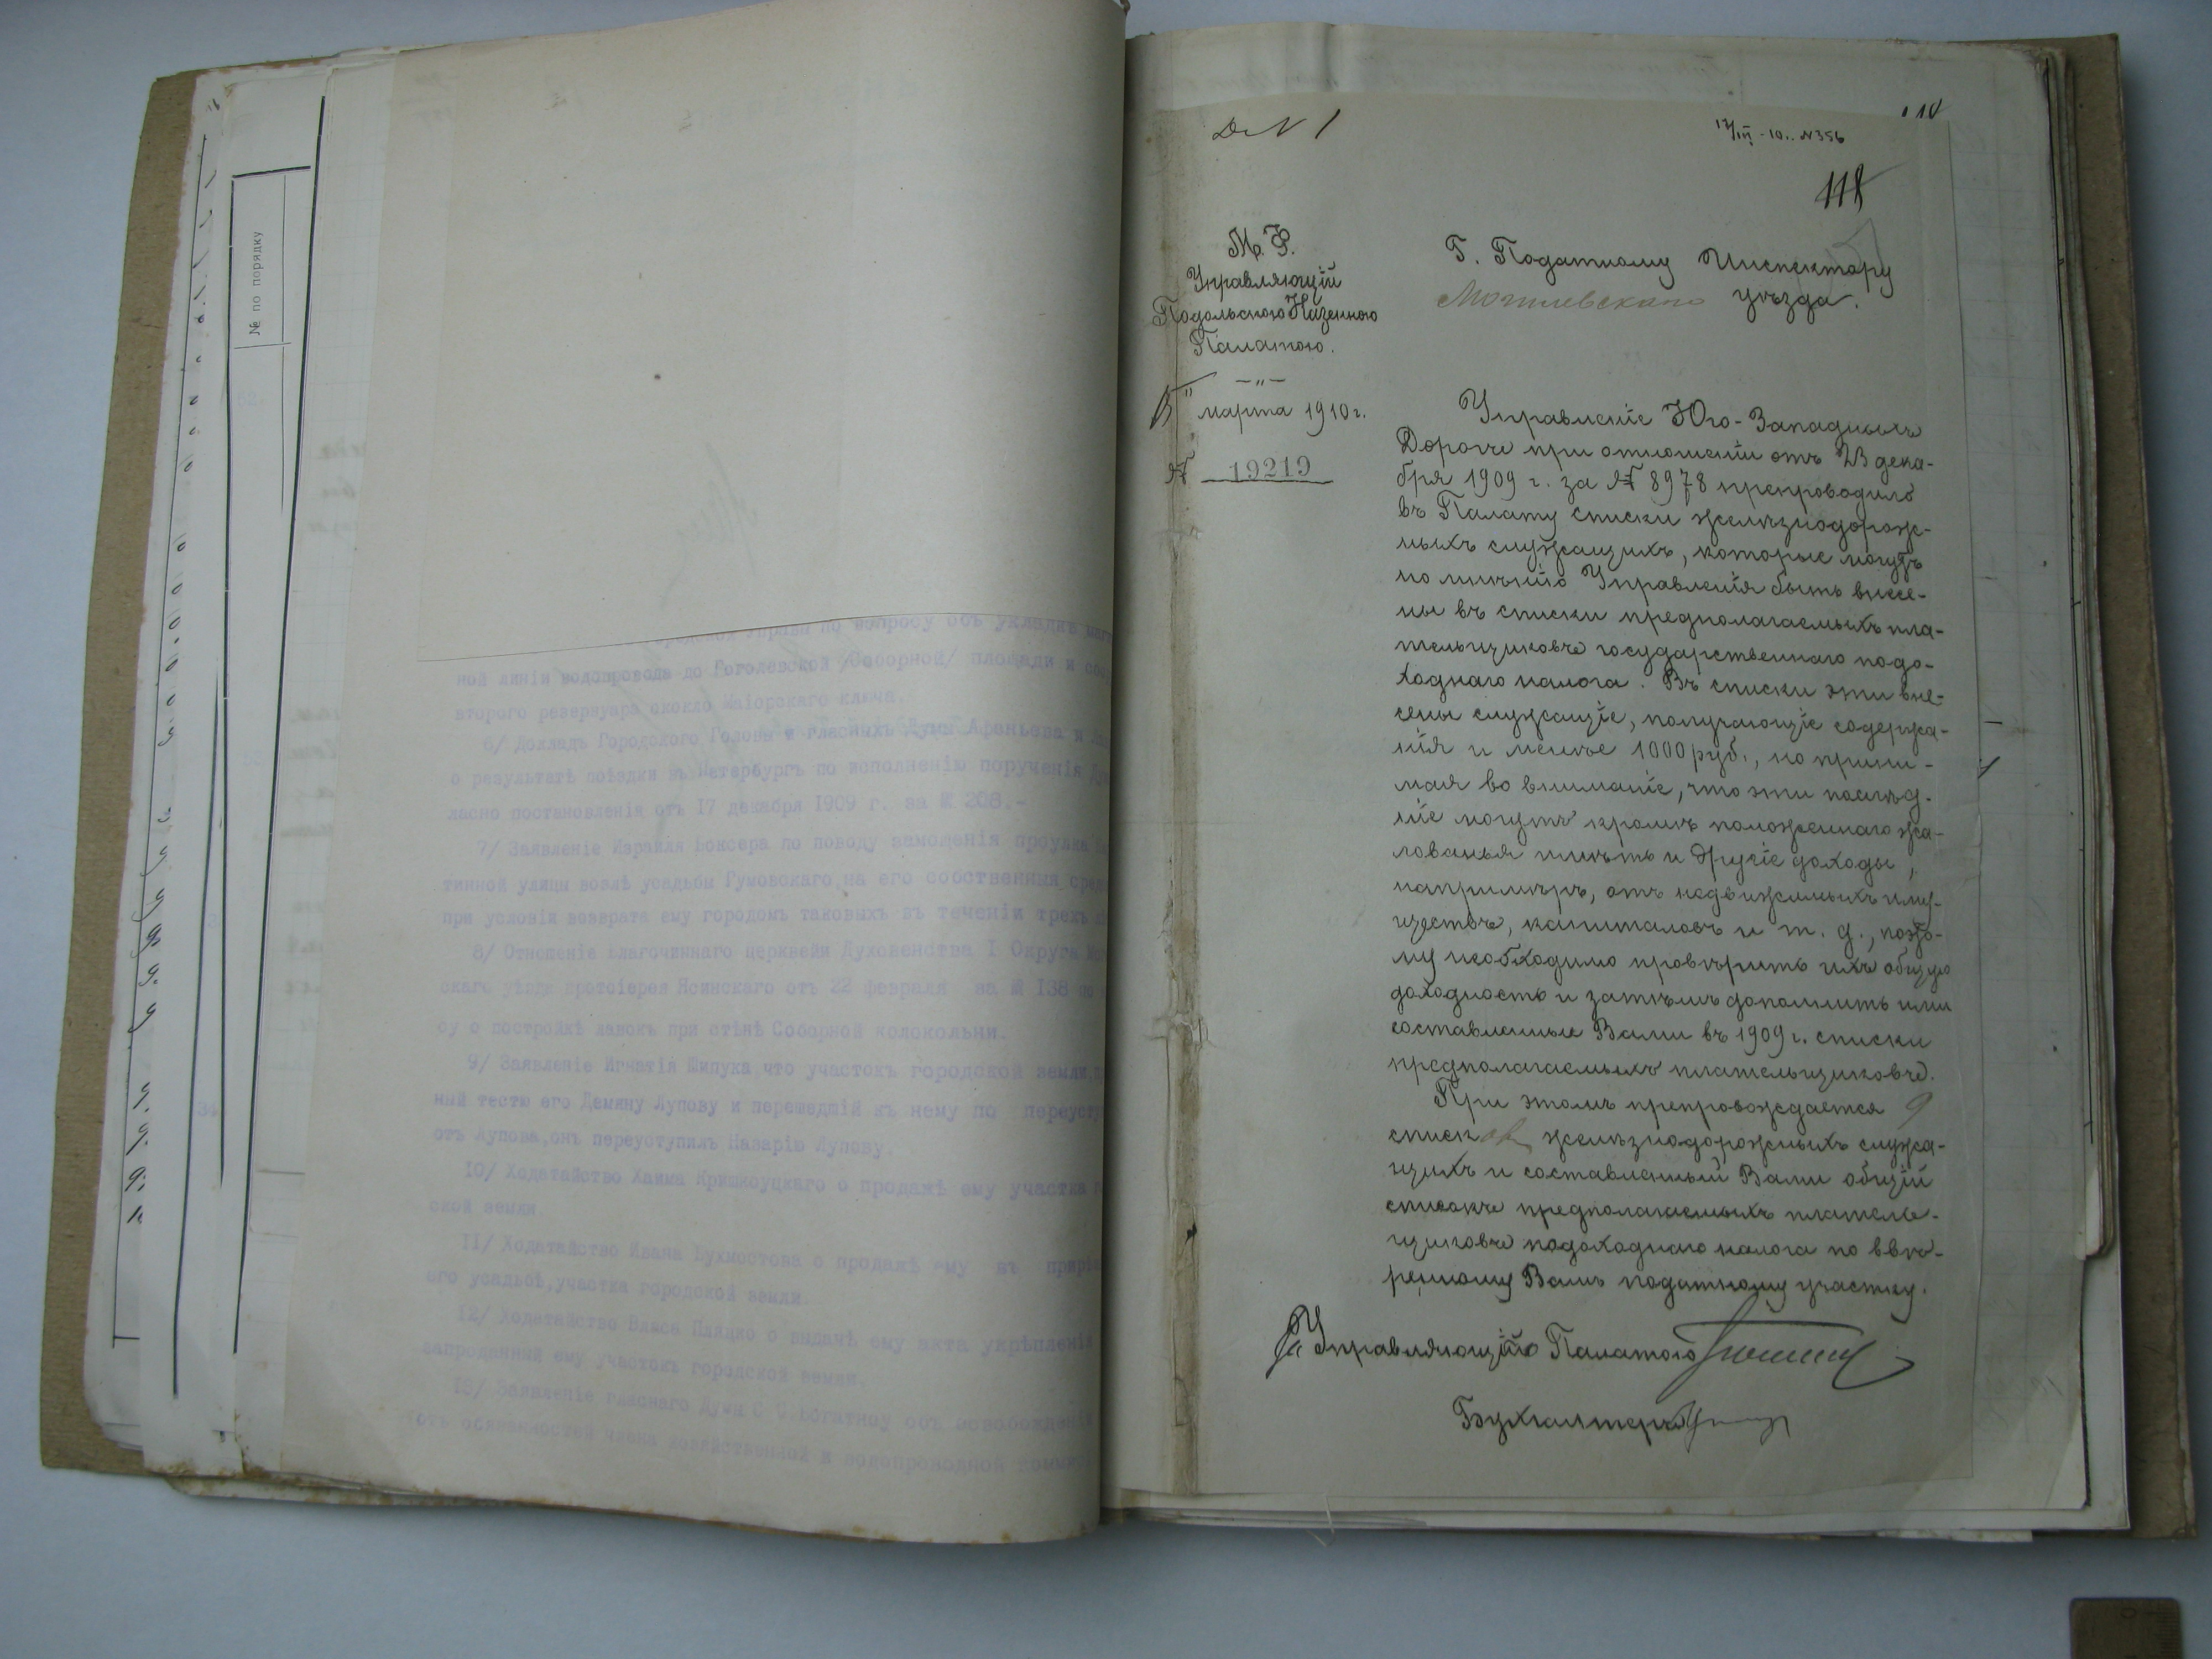 № по порядку
Управы по вопросу объ укладкѣ маги
ной линіи водопровода до Гоголевской /Соборной/ площади и
второго резервуара около Маіорскаго ключа.
6/ Докладъ Городского Головы и гласныхъ Думы Афеньева и
о результатѣ поѣздки въ Петербургъ по исполненію порученія Ду
ласно постановленія отъ 17 декабря 1909 г. за № 208.-
7/ Заявленіе Израиля Боксера по поводу замощенія проулка
тинной улицы возлѣ усадьбы Гумовскаго на его собственныя сред
при условіи возврата ему городомъ таковыхъ въ теченіи трехъ
8/ Отношеніе Благочиннаго церквей Духовенства I Округа
скаго уѣзда протоіерея Ясинскаго отъ 22 февраля за № 138 по
су о постройкѣ лавокъ при стѣнѣ Соборной колокольни.
9/ Заявленіе Игнатія Шипука что участокъ городской земли,
ный тестю его Демяну Лупову и перешедшій къ нему по переусту
отъ Лупова,онъ переуступилъ Назарію Лупову.
10/ Ходатайство Хаима Кришкоуцкаго о продажѣ ему участка
ской земли.
11/ Ходатайство Ивана Бухмостова о продажѣ ему въ прирѣ
его усадьбѣ,участка городской земли.
12/ Ходатайство Власа Пляцко о выдачѣ ему акта укрѣпленія
запроданный ему участокъ городской земли.
13/ Заявленіе гласнаго Думы С С объ освобожденіи
отъ обязанностей члена хозяйственной и водопроводной комми
Д № 1
17/III - 10.. № 356
118
М. Ф.
Управляющій
Подольскою Казенною
Палатою.
— „ —
15" марта 1910 г.
№ 19219
Г. Податному Инспектору
Могилевскаго уѣзда.
Управленіе Юго-Западныхъ
Дорогъ при отношеніи отъ 23 дека-
бря 1909 г. за № 8978 препроводило
въ Палату списки желѣзнодорож-
ныхъ служащихъ, которые могутъ
по мнѣнію Управленія быть внесе-
ны въ списки предполагаемыхъ пла-
тельщиковъ государственнаго подо-
ходнаго налога. Въ списки эти вне-
сены служащіе, получающіе содержа-
нія и менѣе 1000 руб., но прини-
мая во вниманіе, что эти послѣд-
ніе могутъ кромѣ положеннаго жа-
лованья имѣть и другіе доходы,
напримѣръ, отъ недвижимыхъ иму-
ществъ, капиталовъ и т. д., поэто-
му необходимо провѣрить ихъ общую
доходность и затѣмъ дополнить ими
составленные Вами въ 1909 г. списки
предполагаемыхъ плательщиковъ.
При этомъ препровождается 9
списковъ желѣзнодорожныхъ служа-
щихъ и составленный Вами общій
списокъ предполагаемыхъ платель-
щиковъ подоходнаго налога по ввѣ-
ренному Вамъ податному участку.
За Управляющаго Палатою
Бухгалтеръ